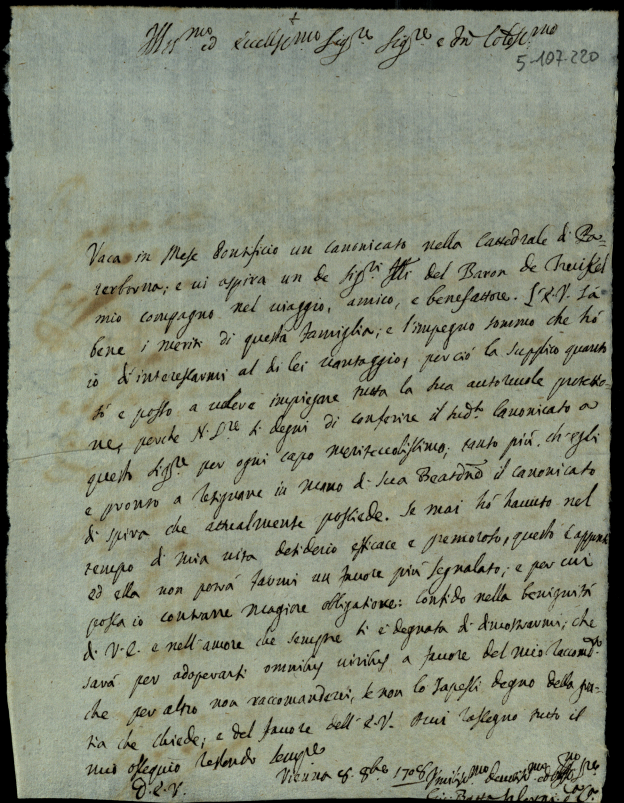 Ill.mo ed eccell.mo Sig.re Sig.re e
5-107-220
Vaca in Mese Pontificio un canonicato nella Cattedrale di Pa-
terborna; e vi aspira un de Sig.ri del Baron de
mio compagno nel viaggio, amico, e benefattore. L'E.V. sà
bene i meriti di questa famiglia; e l'impegno sommo che hò
io d'interessarmi al di lei vantaggio, perciò la supplico quanto
sò e posso a volere impiegare tutta la sua autorevole protettio-
ne, perche N. S.re si degni di conferire il sud.to Canonicato a
questo Sig.re per ogni capo meritevolissimo; tanto più, ch'egli
e pronto a resignare in mano di Sua Beatd.ne il canonicato
di Spira che attualmente possiede. Se mai hò havuto nel
tempo di mia vita desiderio efficace e premoroso, questo è appunto
ed ella non potrà farmi un favore più segnalato; e per cui
possa io contrarre magiore obligatione: confido nella benignità
di V.E. e nell'amore che sempre si è degnata di dimostrarmi; che
sarà per adoperarsi omnibus viribus a favore del mio raccom.to
che per altro non raccomanderei, se non lo sapessi degno della gra-
tia che chiede; e del favore dell'E.V. a cui rassegno tutto il
mio ossequio restando sempre
D.E.V.
Vienna 8. 8bre 1708